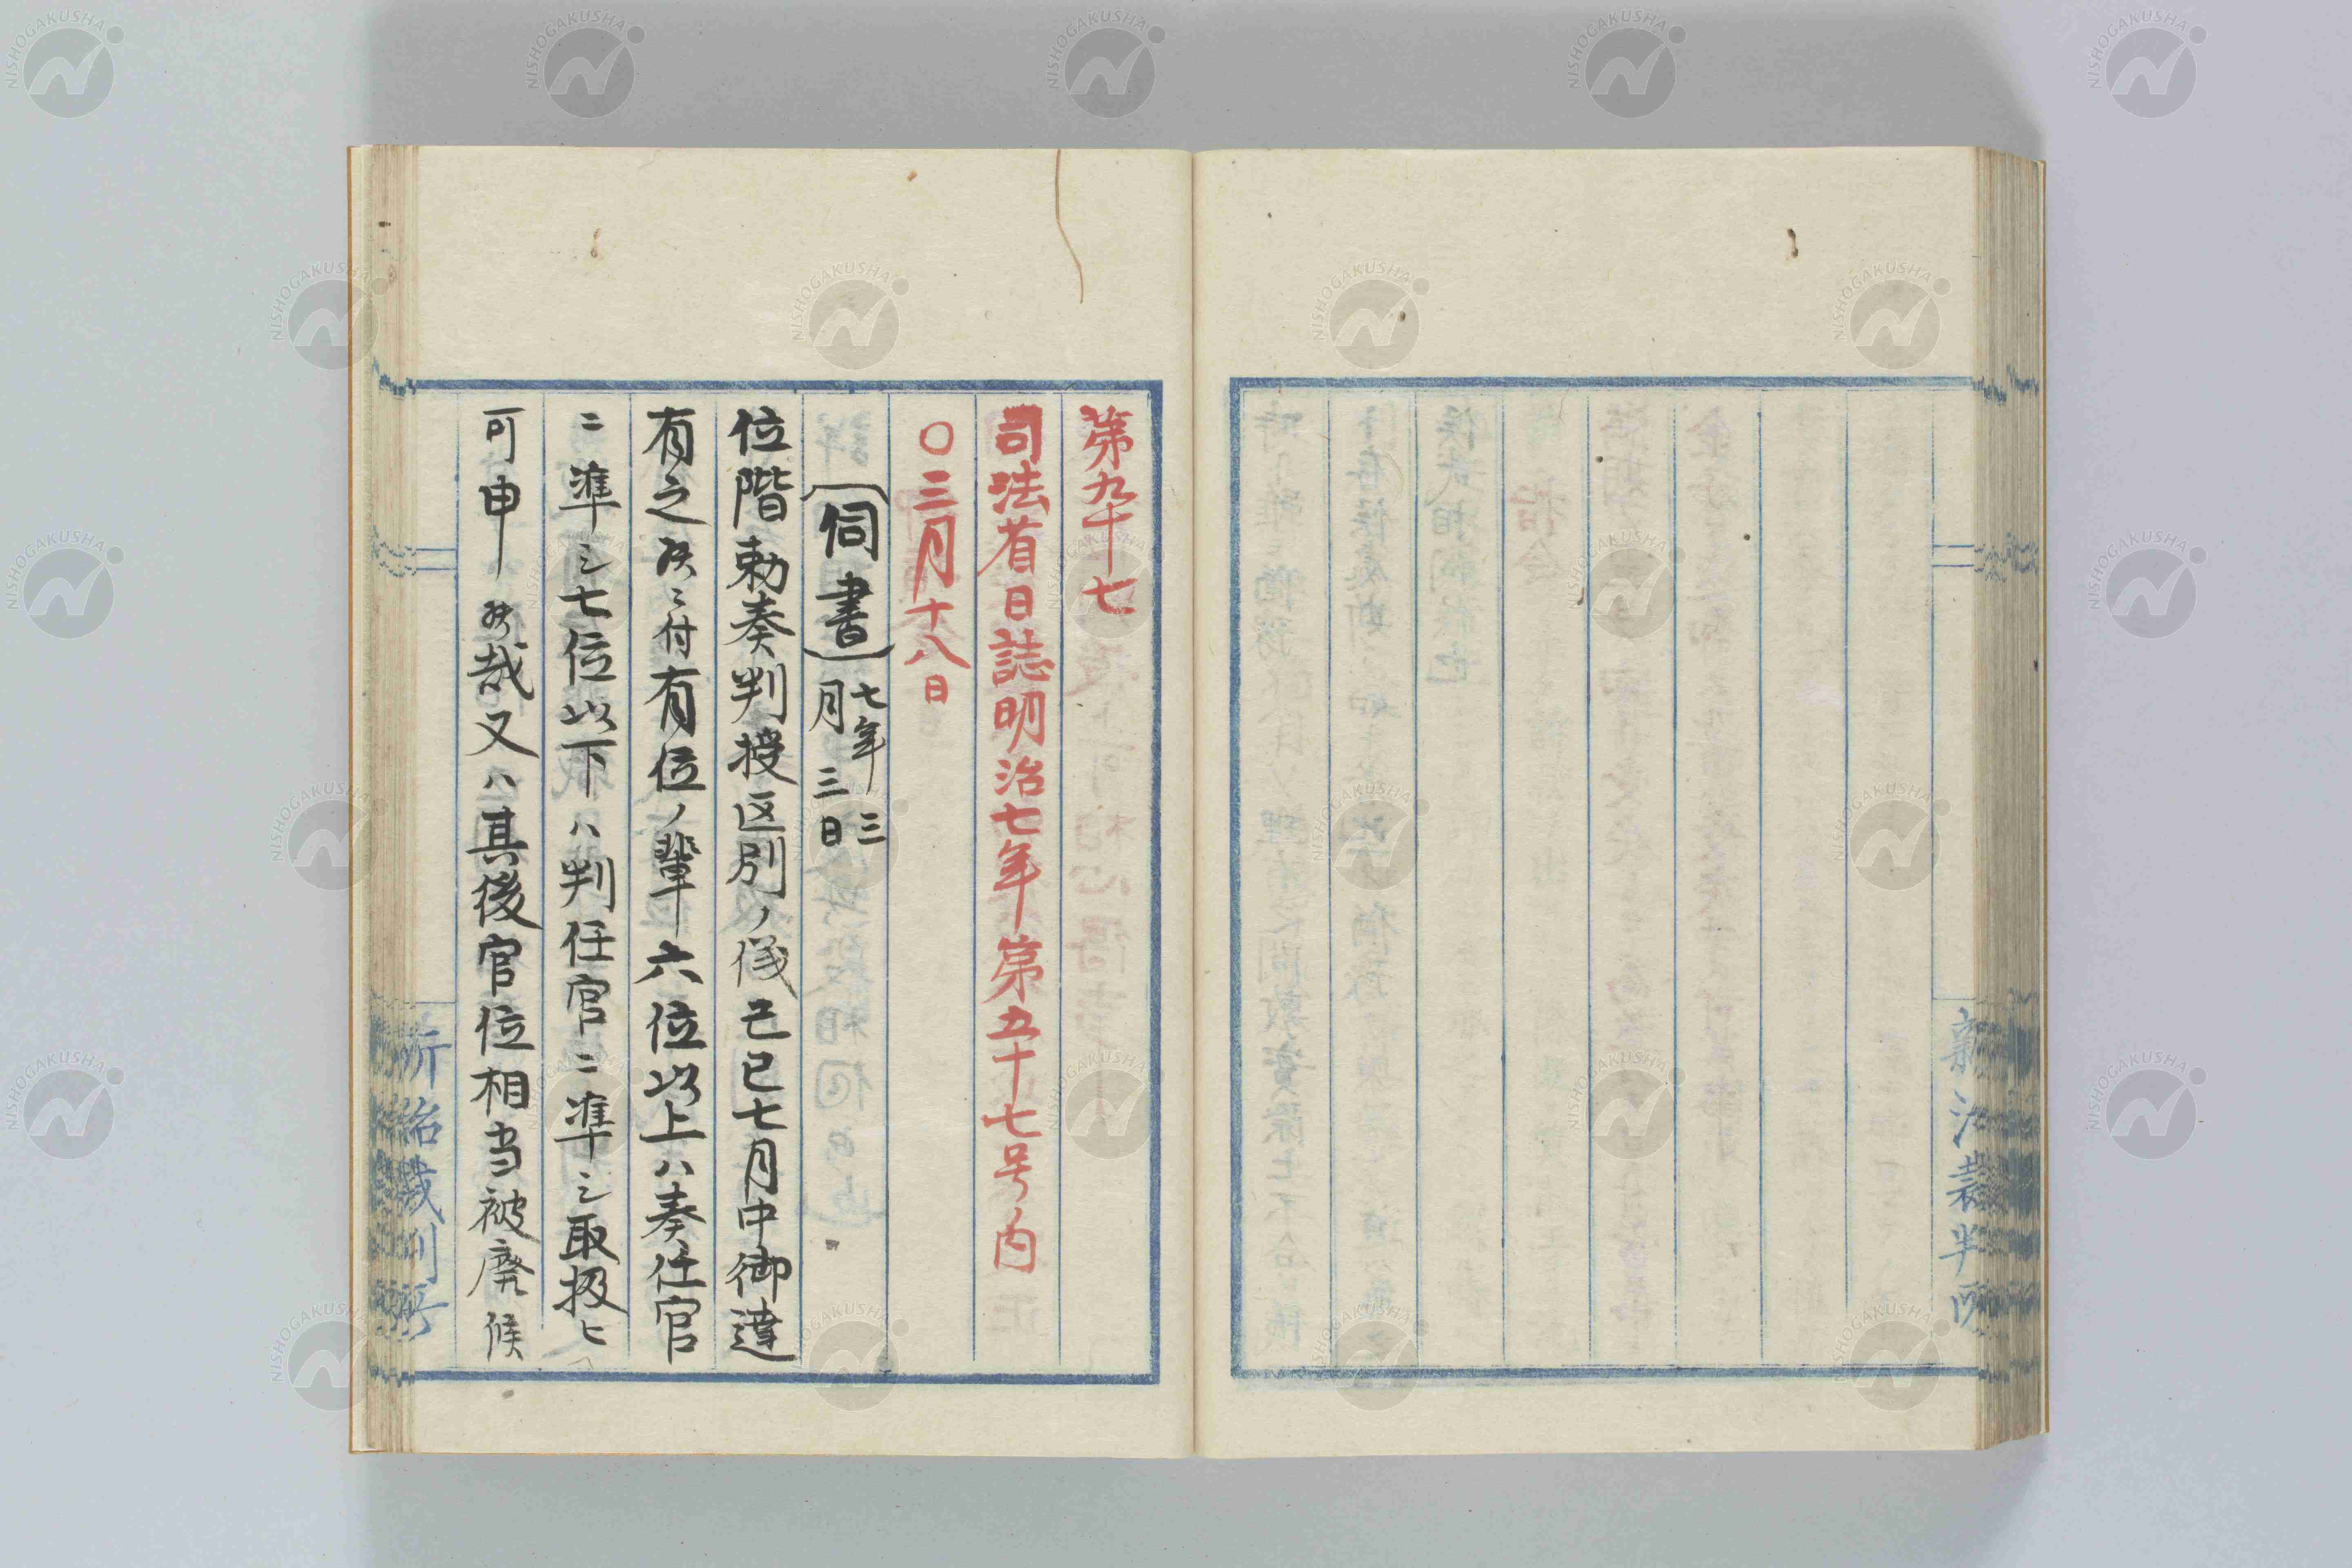 第九十七
司法省日誌明治七年第五十七号内
〇三月十八日
〔伺書〕七年三月三日
位階勅奏判授区別ノ儀己巳七月中御達
有之候ニ付有位ノ輩六位以上ハ奏任官
ニ準シ七位以下ハ判任官ニ準シ取扱ヒ
可申哉又ハ其後官位相当被廃候
新治裁判所
新治裁判所
NISHOGAKUSHA